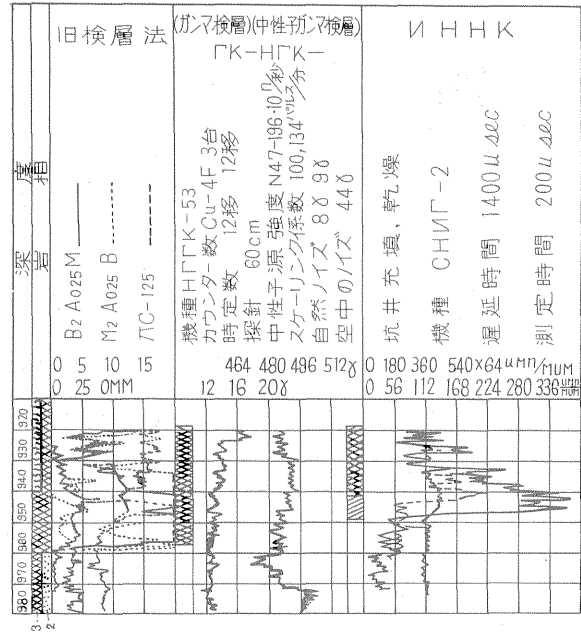 深度
岩相
旧検層法
B2 A025M
M2 A025 B
ПС-125
0 5 10 15
0 25 0MM
(ガンマ検層)(中性子ガンマ検層)
ГК-НГК-
機種 НГГК-53
カウンター数 Cu-4F 3台
時定数 12移 12移
探針 60cm
中性子源強度 N47-196·10 n/秒
スケーリンク係数 100,134 パルス/分
自然ノイズ 8γ 9γ
空中のノイズ 44γ
464 480 496 512γ
12 16 20γ
ИННК
坑井充填,乾燥
機種 СНИГ-2
遅延時間 1400μsec
測定時間 200μsec
0 180 360 540×64 имп/мим
0 56 112 168 224 280 336
920
930
940
950
960
970
980
3
2